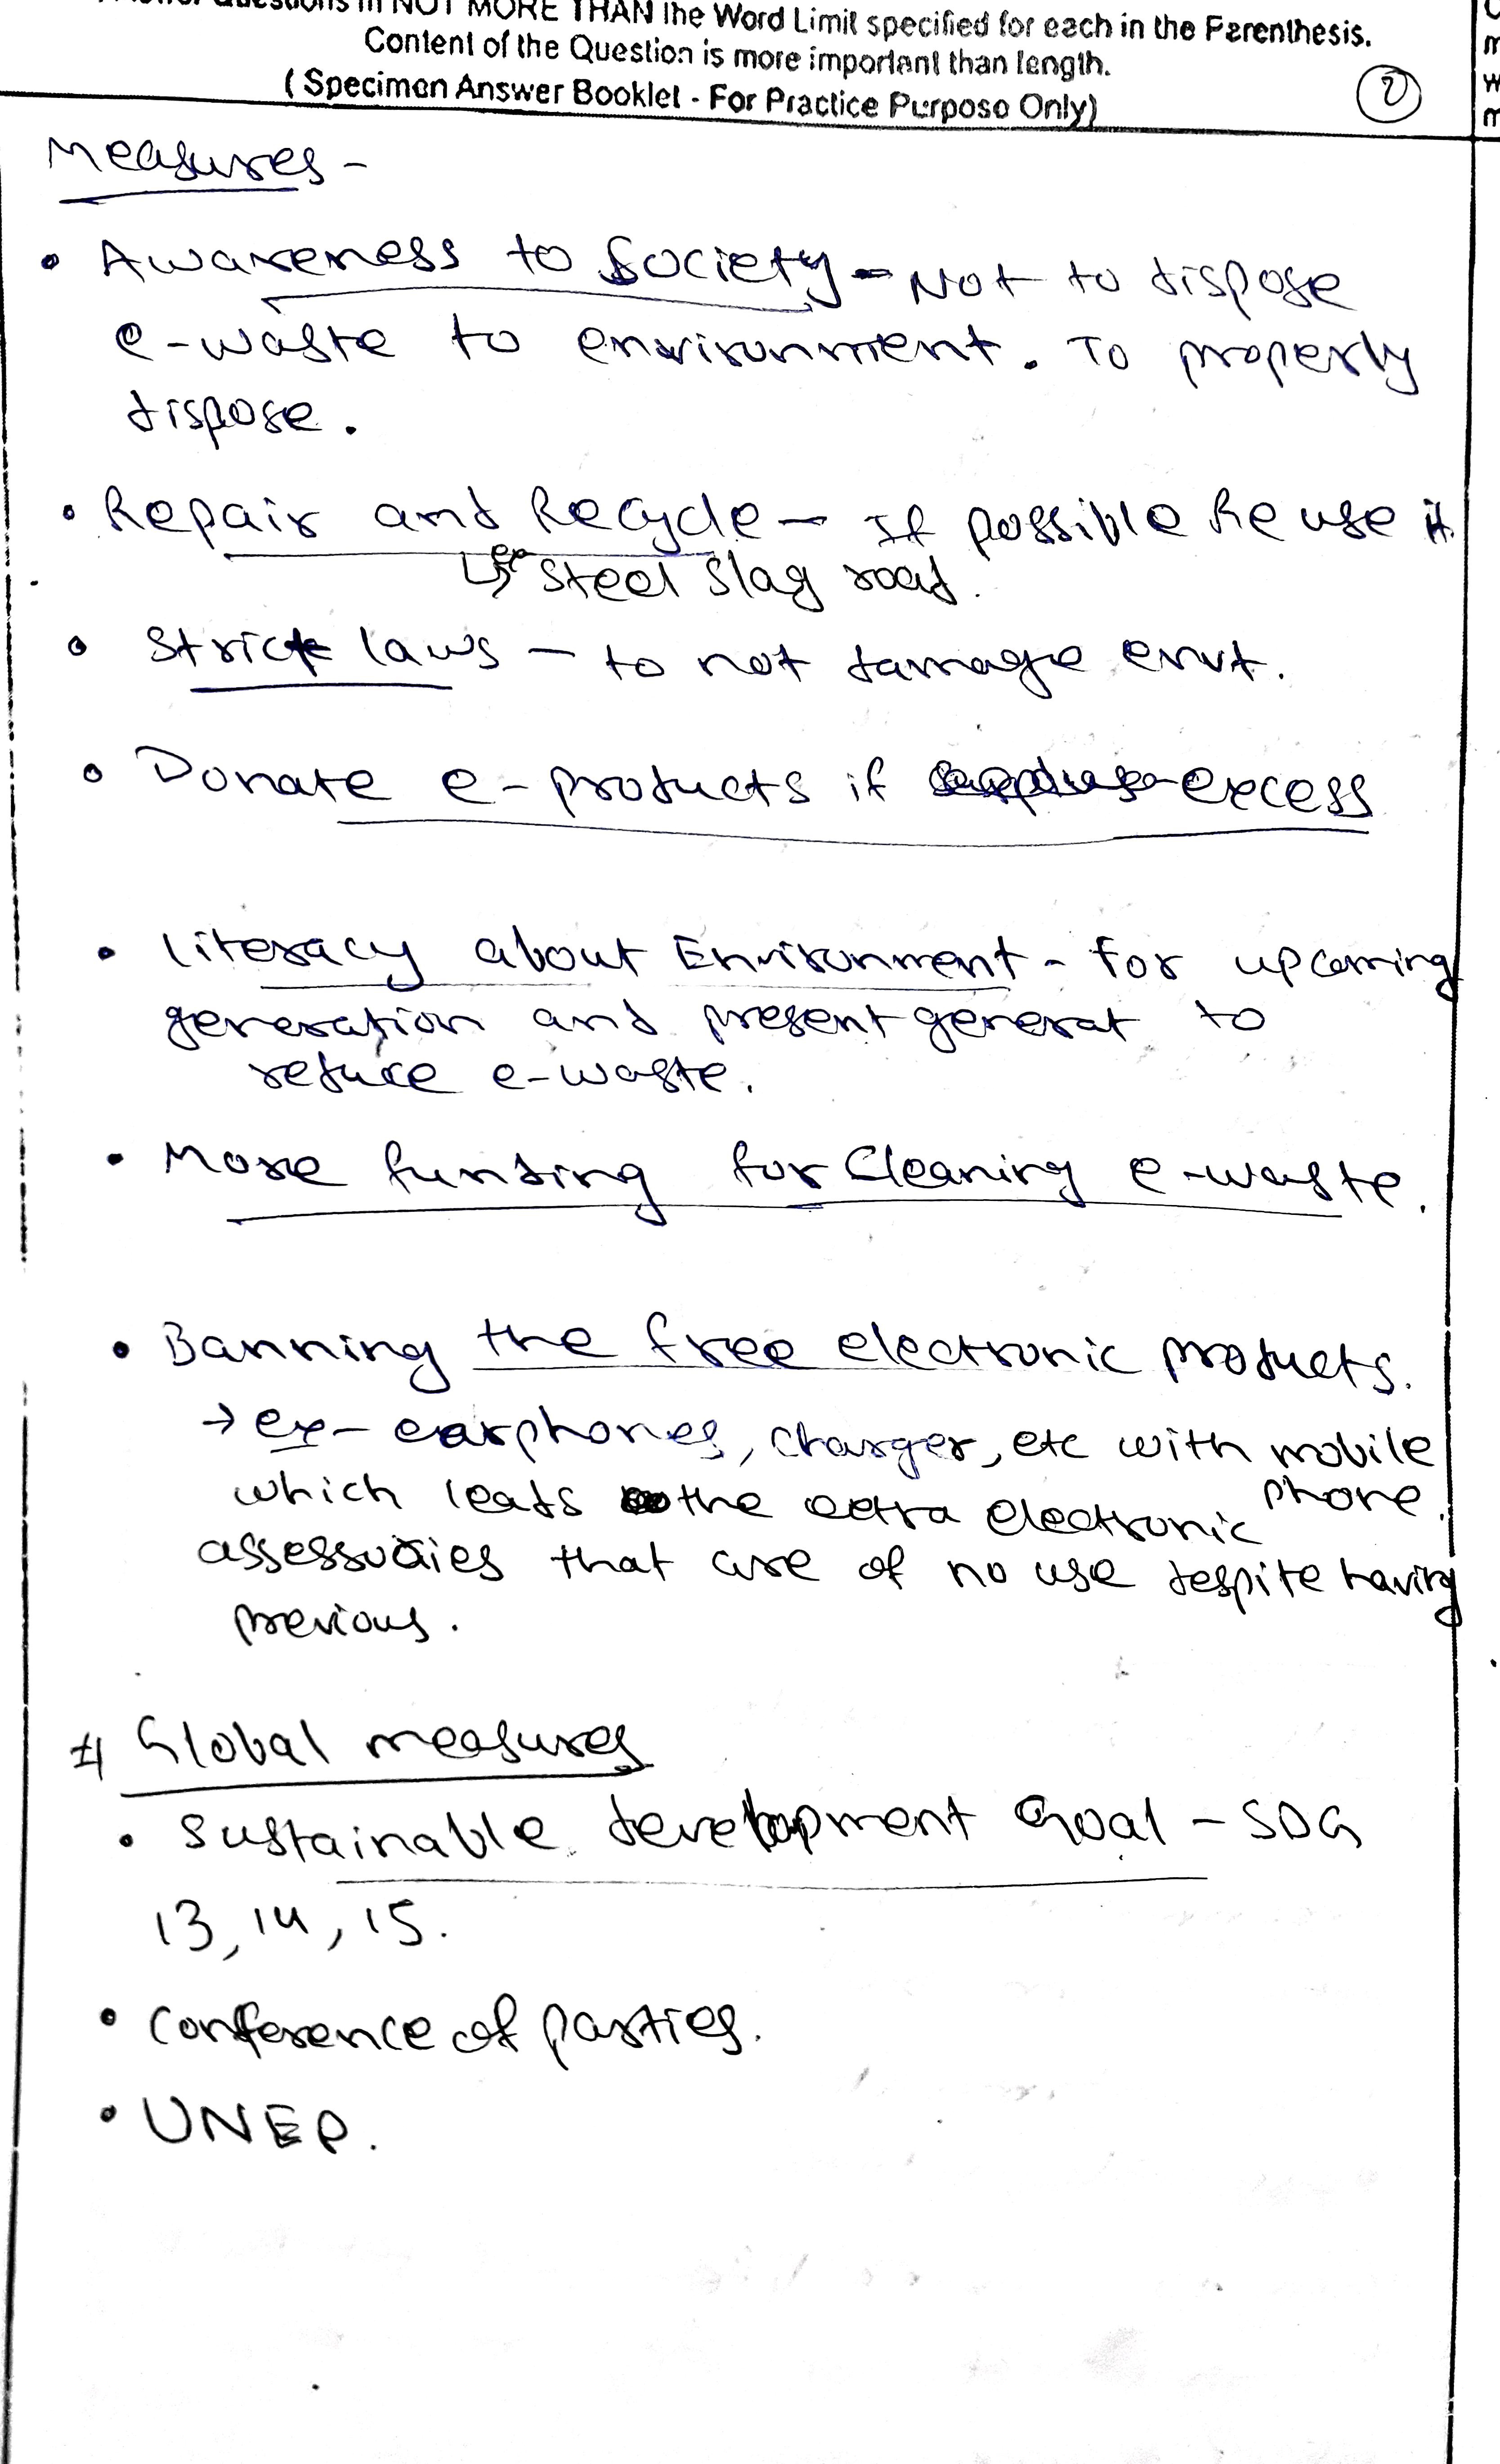 Questions in NOT MORE THAN the Word Limit specified for each in the Parenthesis.
Content of the Question is more important than length.
( Specimen Answer Booklet - For Practice Purpose Only)
2
Measures -
• Awareness to Society - Not to dispose
e-waste to environment. To properly
dispose.
• Repair and Recycle - If possible Reuse it.
↳ ex Steel Slag road.
• Strict laws - to not damage envt.
• Donate e-products if excess
• Literacy about Environment - for upcoming
generation and present generat to
reduce e-waste.
• More funding for Cleaning e-waste.
• Banning the free electronic products.
→ ex- earphones, charger, etc with mobile
phone.
which leads the extra electronic
assessories that are of no use despite having
previous.
# Global measures
• Sustainable development Goal - SDG
13, 14, 15.
• Conference of parties.
• UNEP.